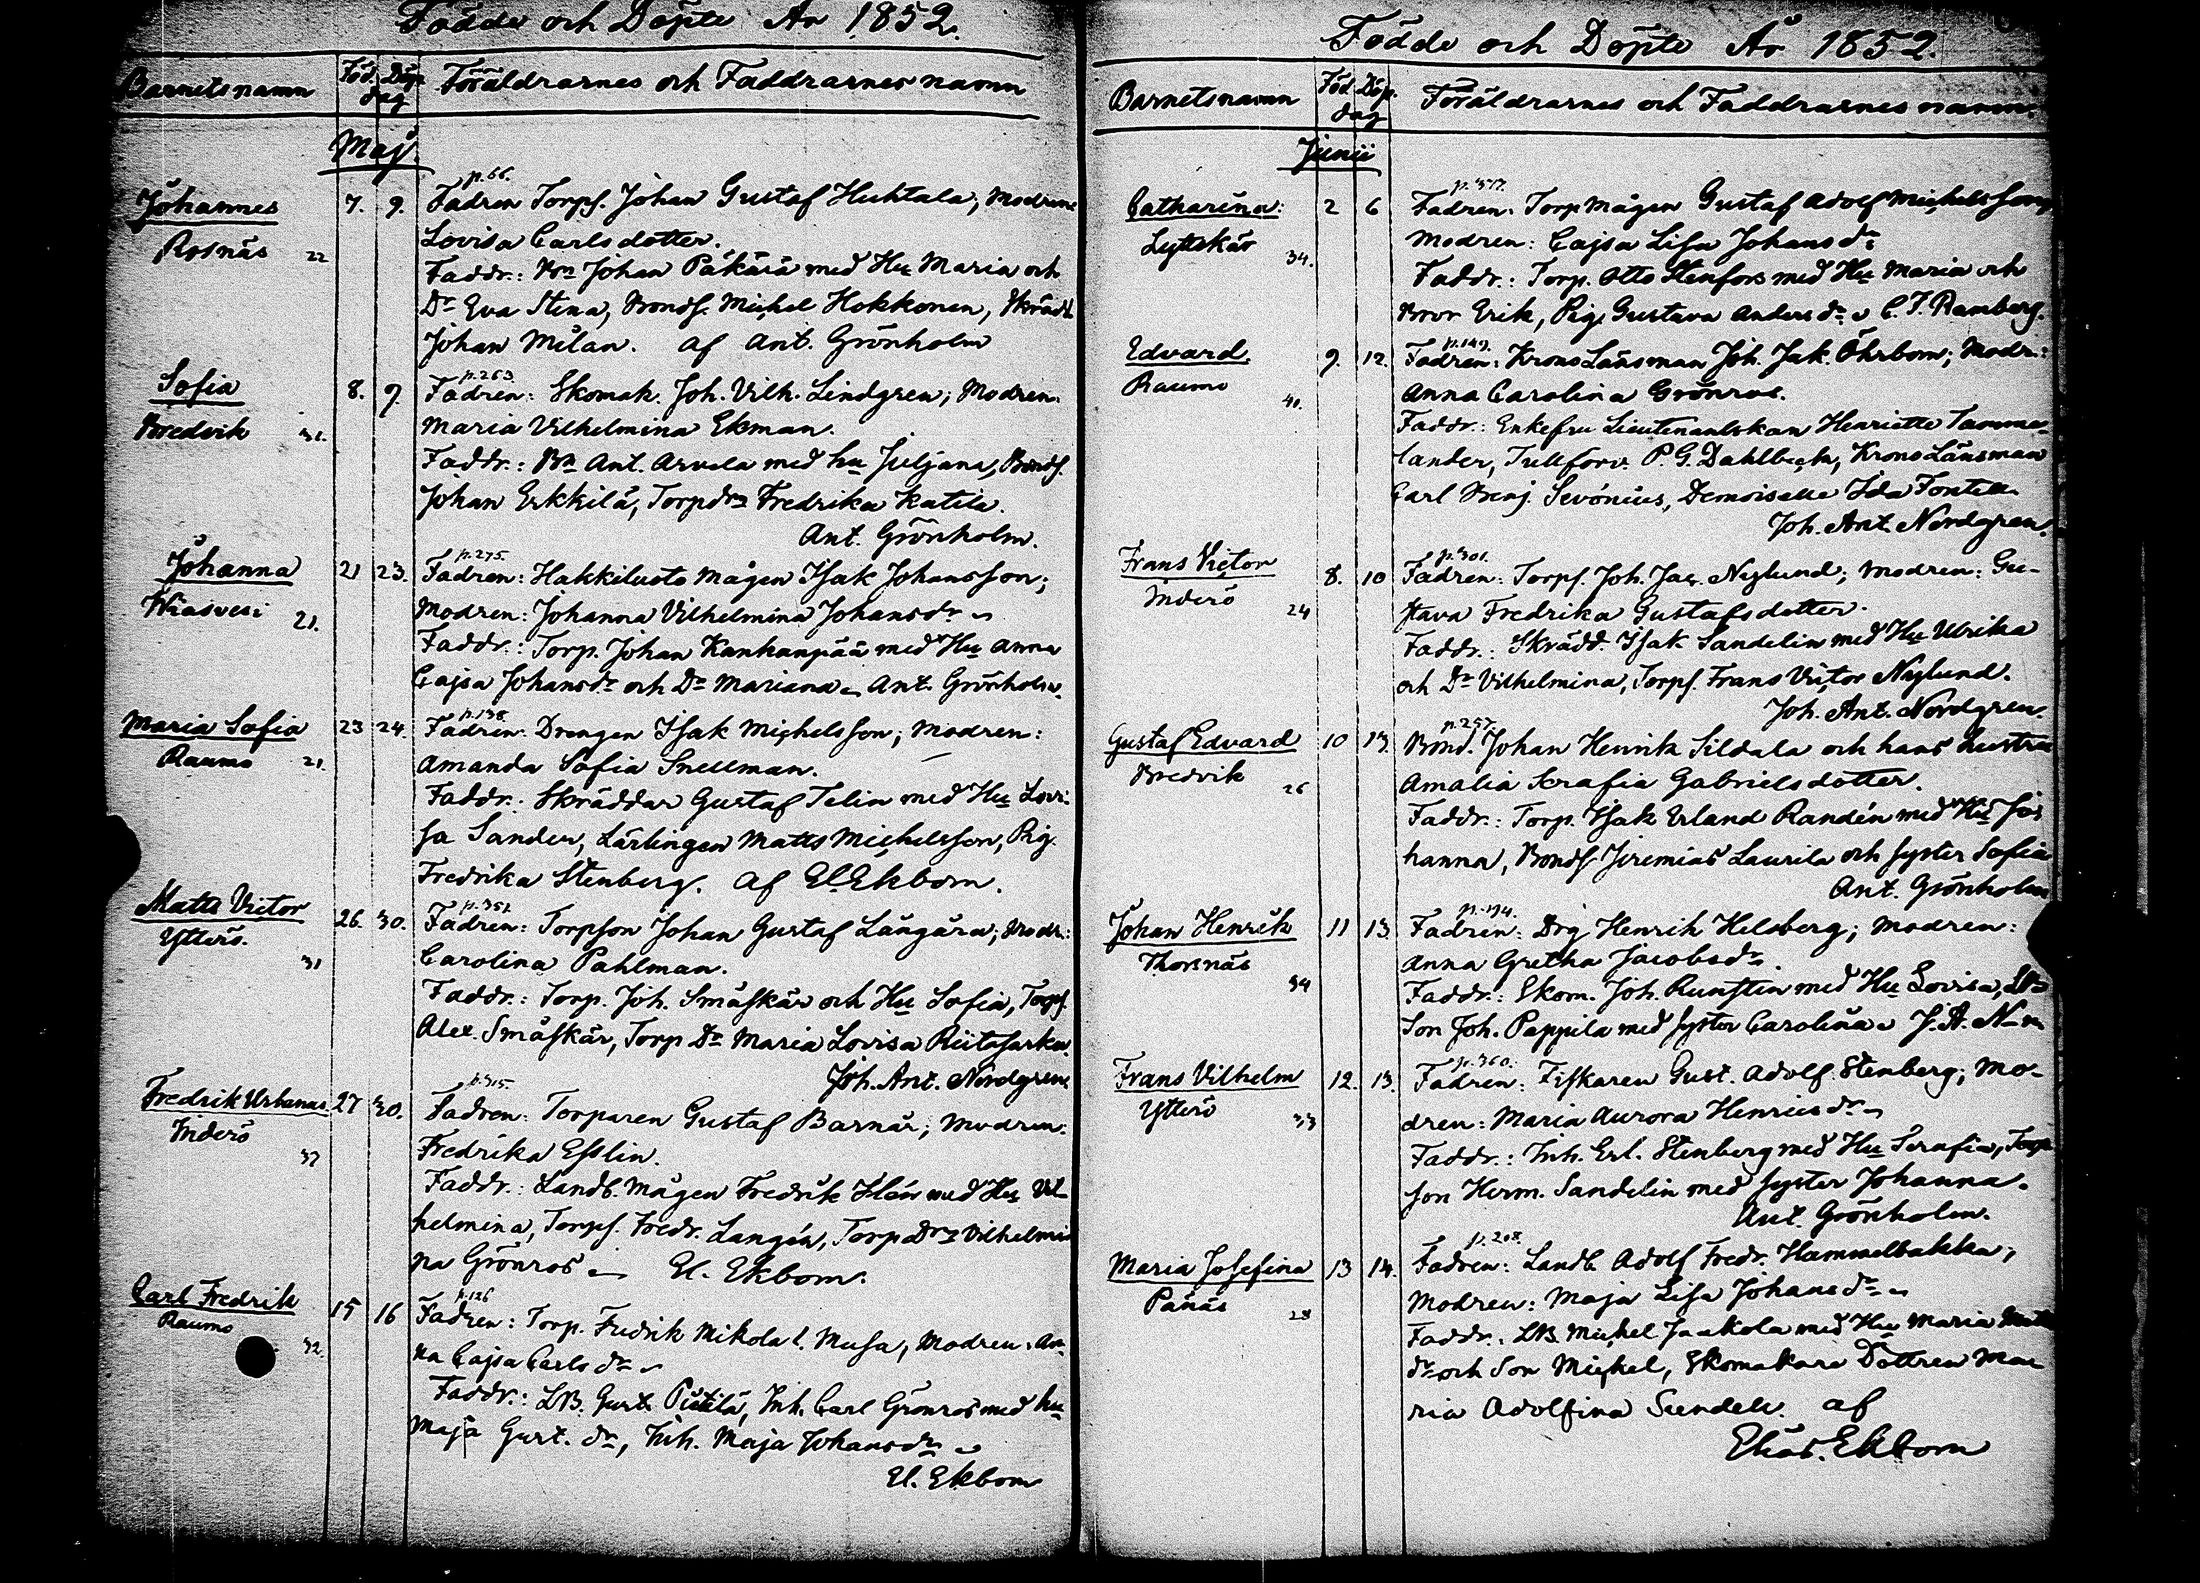 Födde och Döpte År 1852.
Barnets namn Föd. Döp. dag Föräldrarnes och Faddrarnes namn
Maj
Johannes 7. 9. p.66. Fadren Torpf. Johan Gustaf Huhtala; Modren
Rosnäs 22 Lovisa Carlsdotter.
Faddr.: Bn Johan Päkärä med Hu Maria och
Dr Eva Stina, Bondf. Michel Hokkonen, Skrädd.
Johan Milan. af Ant. Grönholm
Sofia 8. 9. p.263 Fadren: Skomak. Joh. Vilh. Lindgren; Modren:
Bredvik Maria Vilhelmina Ekman.
Faddr.: Bn Ant. Arvela med hu Juljana, Bondf.
Johan Erkkilä, Torpdr Fredrika Katila.
Ant. Grönholm.
Johanna 21 23. p.275. Fadren: Hakkiluoto Mågen Isak Johansson;
Wiasvesi 21. Modren: Johanna Vilhelmina Johansdr
Faddr.: Torp. Johan Kankanpää med Hu Anna
Cajsa Johansdr och Dr Mariana. Ant. Grönholm.
Maria Sofia 23 24. p.138. Fadren: Drengen Isak Michelsson; Modren:
Raumo 21. Amanda Sofia Snellman.
Faddr.: Skräddar Gustaf Telin med Hu Lovi-
sa Sanden, Lärlingen Matts Michelsson, Pig.
Fredrika Stenberg. af El. Ekbom.
Matts Victor 26. 30. p.351. Fadren: Torpson Johan Gustaf Långåra; Modr.:
Ytterö. 31 Carolina Pahlman.
Faddr.: Torp. Joh. Småskär och Hu Sofia, Torpf.
Alex. Småskär, Torp Dr Maria Lovisa Riitasarka.
Joh. Ant. Nordgren
Fredrik Urbanus 27 30. p.315. Fadren: Torparen Gustaf Barnär; Modren:
Inderö 37 Fredrika Esslin.
Faddr.: Landb. Mågen Fredrik Hlén med Hu Vil-
helmina, Torpf. Fredr. Langén, Torp Drs Vilhelmi
na Grönros. El. Ekbom.
Carl Fredrik 15 16 p.126 Fadren: Torp. Fredrik Mikola l. Musa, Modren: An-
Raumo 32. na Cajsa Carlsdr
Faddr.: LB. Gust. Piitilä, Inh. Carl Grönros med hu
Maja Gust. dr, Inh. Maja Johansdr
El. Ekbom
Födde och Döpte År 1852.
Barnetsnamn Föd. Döp. dag Föräldrarnes och Faddrarnes namn.
Junii
Catharina. 2 6 p.377. Fadren: Torp Mågen Gustaf Adolf Michelsson,
Lyttskär 34. Modren: Cajsa Lisa Johansdr
Faddr.: Torp. Otto Stenfors med Hu Maria och
Bror Erik, Pig. Gustava Andersdr C. F. Ramberg.
Edvard. 9. 12. p.149. Fadren: Krono Länsman Joh. Jak. Öhrbom; Modr.:
Raumo 40. Anna Carolina Grönros.
Faddr.: Enkefru Lieutenantskan Henriette Tamme-
lander, Tullförv. P. G. Dahlbeck, Krono Länsman
Carl Benj. Sevónius, Demoiselle Ida Fontell.
Joh. Ant. Nordgren.
Frans Victor 8. 10 p.301. Fadren: Torpf. Joh. Jac. Nylund; Modren: Gu-
Inderö 24 stava Fredrika Gustafsdotter.
Faddr.: Skrädd. Isak Sandelin med Hu Ulrika
och Dr Vilhelmina, Torpf. Frans Victor Nylund.
Joh. Ant. Nordgren.
Gustaf Edvard 10 13. p.257. Bond. Johan Henrik Sildala och hans hustru
Bredvik 26 Amalia Serafia Gabrielsdotter.
Faddr.: Torp. Isak Erland Randén med Hu Jo-
hanna, Bondf. Jeremias Laurila och syster Sofia
Ant. Grönholm
Johan Henrik 11 13. p.194. Fadren: Drg Henrik Helsberg; Modren:
Thorsnäs 34 Anna Gretha Jacobsdr.
Faddr.: Skom. Joh. Runsten med Hu Lovisa, LB
Son Joh. Pappila med syster Carolina J. A. N-n
Frans Vilhelm 12. 13. p.360. Fadren: Fiskaren Gust. Adolf Stenberg; Mo-
Ytterö 33 dren: Maria Aurora Henricsdr
Faddr.: Inh. Erl. Stenberg med Hu Serafia, Torp
son Herm. Sandelin med syster Johanna.
Ant. Grönholm.
Maria Josefina 13 14. p.208. Fadren: Landb Adolf Fredr. Hammelbakka;
Panäs 28 Modren: Maja Lisa Johansdr
Faddr.: LB. Michel Jaakola med Hu Maria Matts
dr och Son Michel, Skomakare Dottren Ma-
ria Adolfina Sundell. af
Elias Ekbom